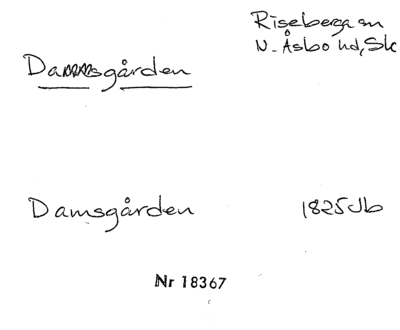 Riseberga sn
N. Åsbo hd, Sk
Dammsgården
Damsgården 1825 Jb
Nr 18367